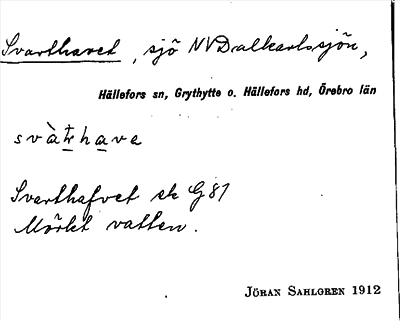 Svarthavet, sjö NV Dalkarlssjön,
Hällefors sn, Grythytte o. Hällefors hd, Örebro län
svàṯhava
Svarthafvet sk G 81
Mörkt vatten.
JÖRAN SAHLGREN 1912